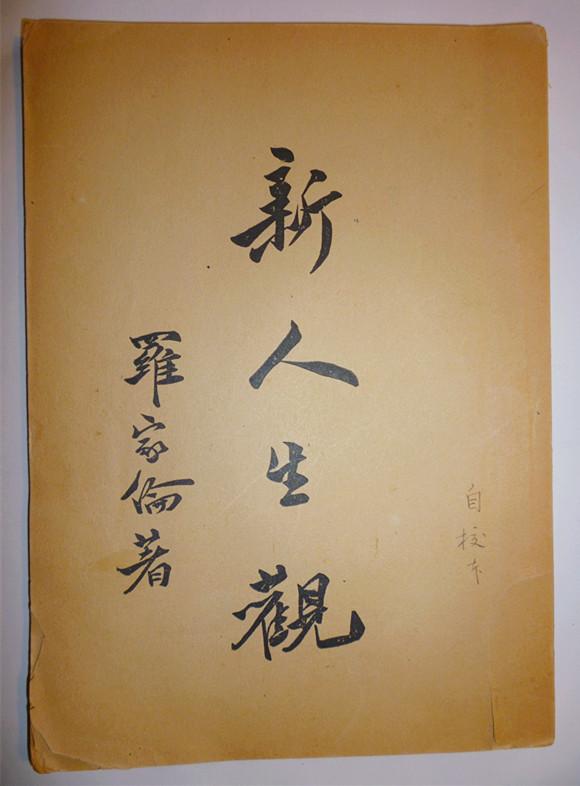 自校本
新人生觀
羅家倫著